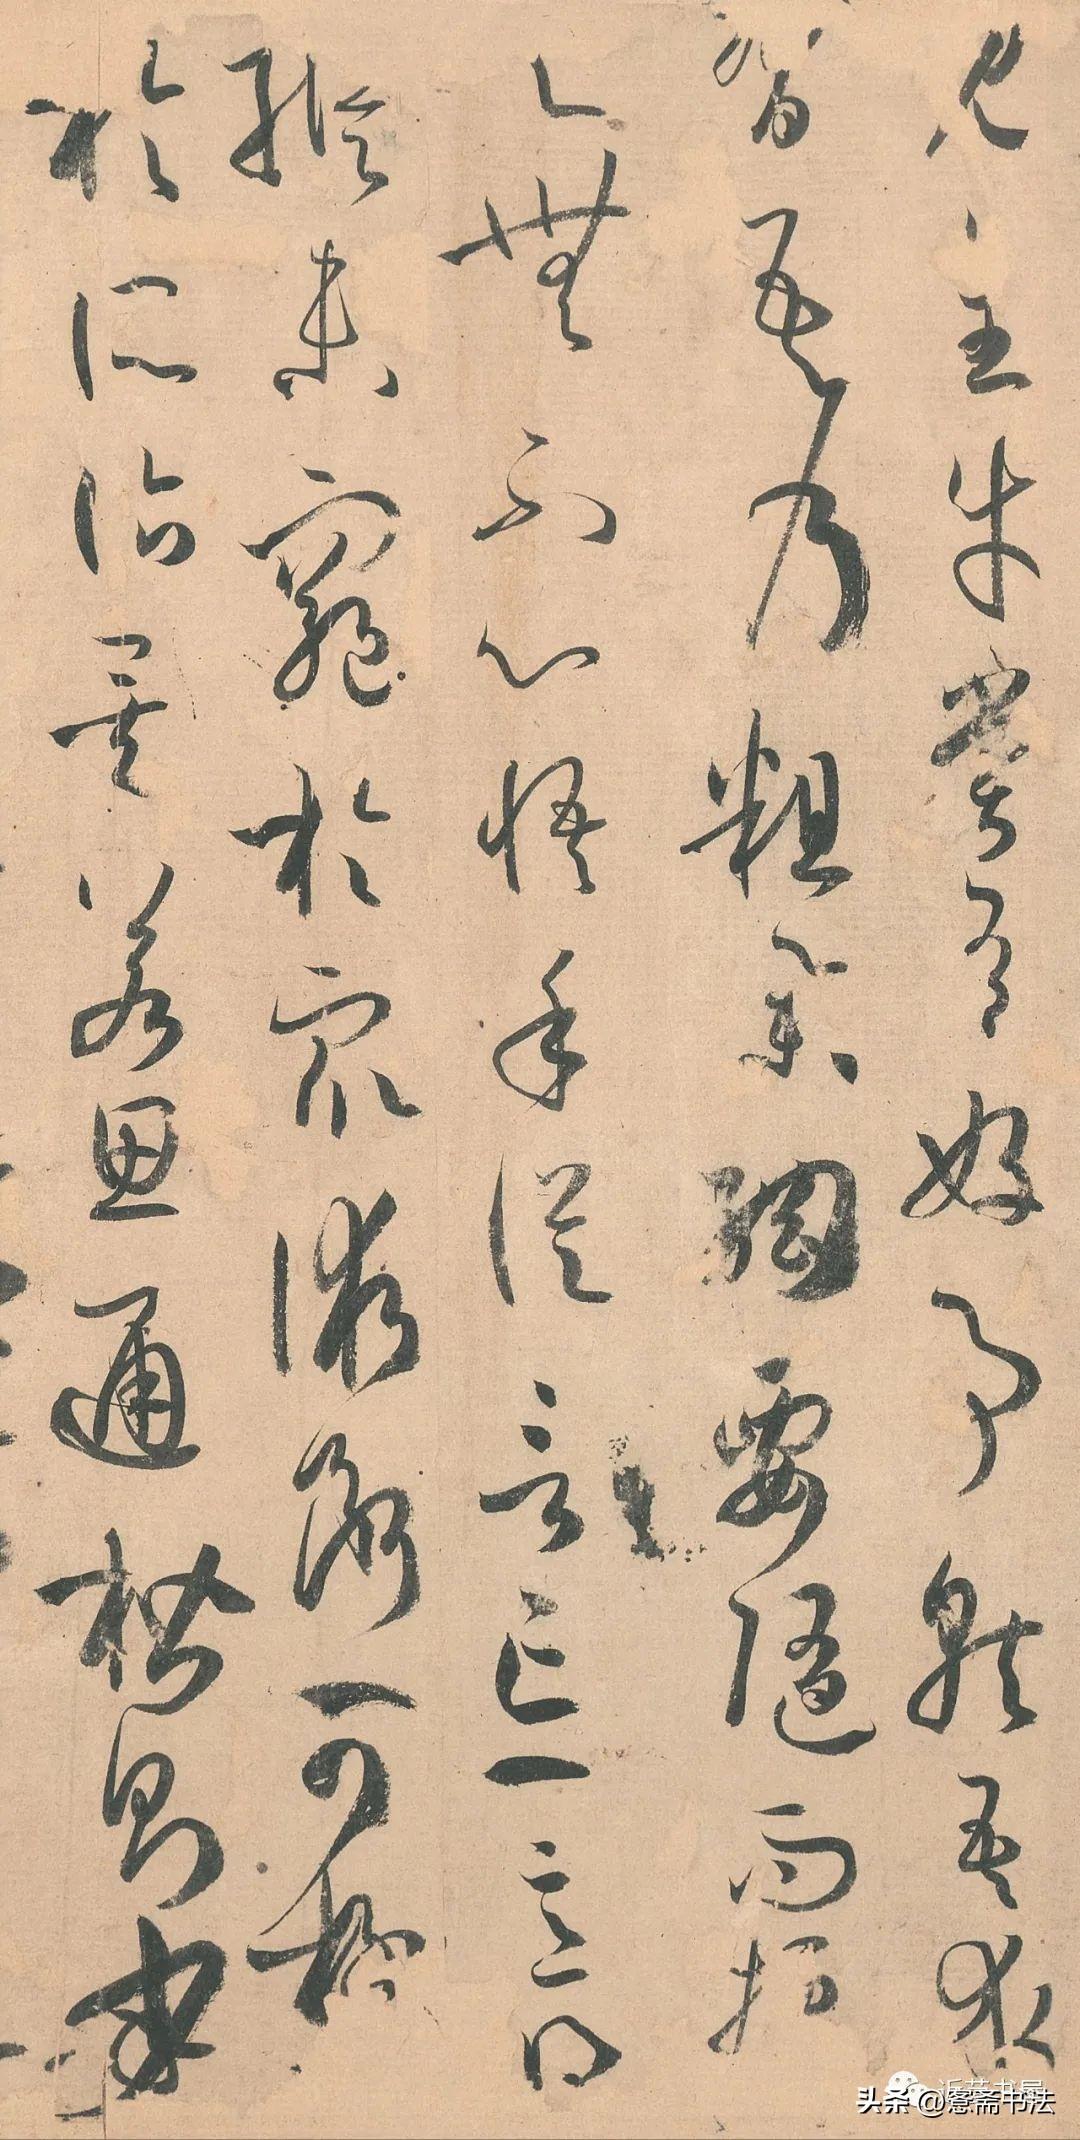 見全牛嘗有好事就吾求
習吾乃粗舉綱要隨而授
之無不心悟手從言忘意得
縱未窮於眾術斷可極
於所詣矣若思通楷則少
头条 @鸴斋书法